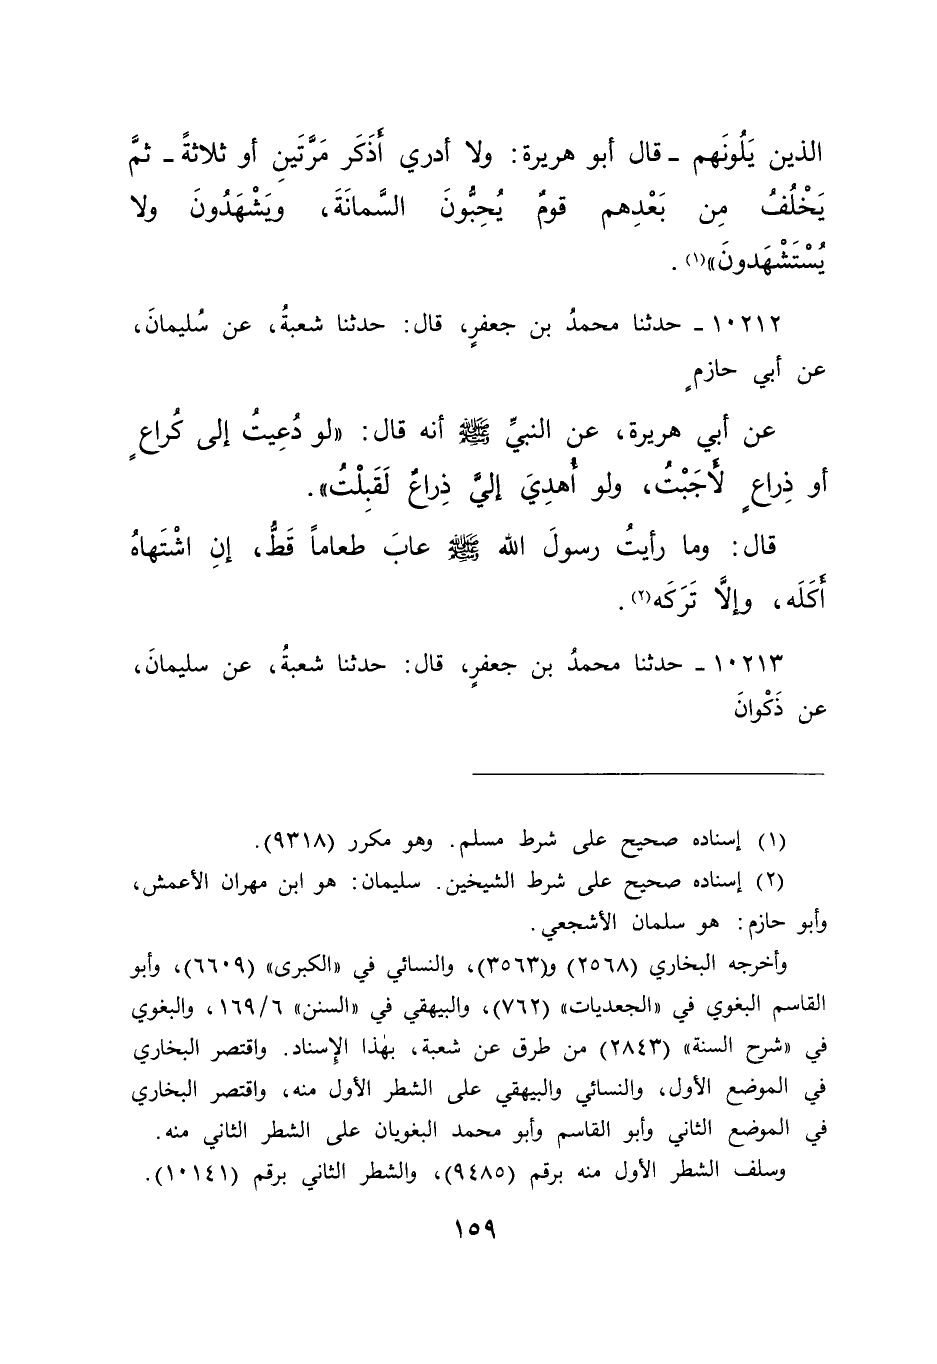 الذين يَلُونَهم ـ قال أبو هريرة: ولا أدري أَذَكَر مَرَّتَينِ أو ثلاثةً ـ ثمَّ
يَخْلُفُ مِن بَعْدِهم قومٌ يُحِبُّونَ السَّمانَةَ، ويَشْهَدُونَ ولا
يُسْتَشْهَدونَ»(١).
١٠٢١٢ ـ حدثنا محمدُ بن جعفرٍ، قال: حدثنا شعبةُ، عن سُليمانَ،
عن أبي حازمٍ
عن أبي هريرة، عن النبيِّ ﷺ أنه قال: «لو دُعِيتُ إلى كُراعٍ
أو ذِراعٍ لأَجَبْتُ، ولو أُهدِيَ إليَّ ذِراعٌ لَقَبِلْتُ».
قال: وما رأيتُ رسولَ الله ﷺ عابَ طعاماً قَطُّ، إنِ اشْتَهاهُ
أَكَلَه، وإلَّا تَرَكَه(٢).
١٠٢١٣ ـ حدثنا محمدُ بن جعفرٍ، قال: حدثنا شعبةُ، عن سليمانَ،
عن ذَكْوانَ
(١) إسناده صحيح على شرط مسلم. وهو مكرر (٩٣١٨).
(٢) إسناده صحيح على شرط الشيخين. سليمان: هو ابن مهران الأعمش،
وأبو حازم: هو سلمان الأشجعي.
وأخرجه البخاري (٢٥٦٨) و(٣٥٦٣)، والنسائي في «الكبرى» (٦٦٠٩)، وأبو
القاسم البغوي في «الجعديات» (٧٦٢)، والبيهقي في «السنن» ١٦٩/٦، والبغوي
في «شرح السنة» (٢٨٤٣) من طرق عن شعبة، بهٰذا الإسناد. واقتصر البخاري
في الموضع الأول، والنسائي والبيهقي على الشطر الأول منه، واقتصر البخاري
في الموضع الثاني وأبو القاسم وأبو محمد البغويان على الشطر الثاني منه.
وسلف الشطر الأول منه برقم (٩٤٨٥)، والشطر الثاني برقم (١٠١٤١).
١٥٩